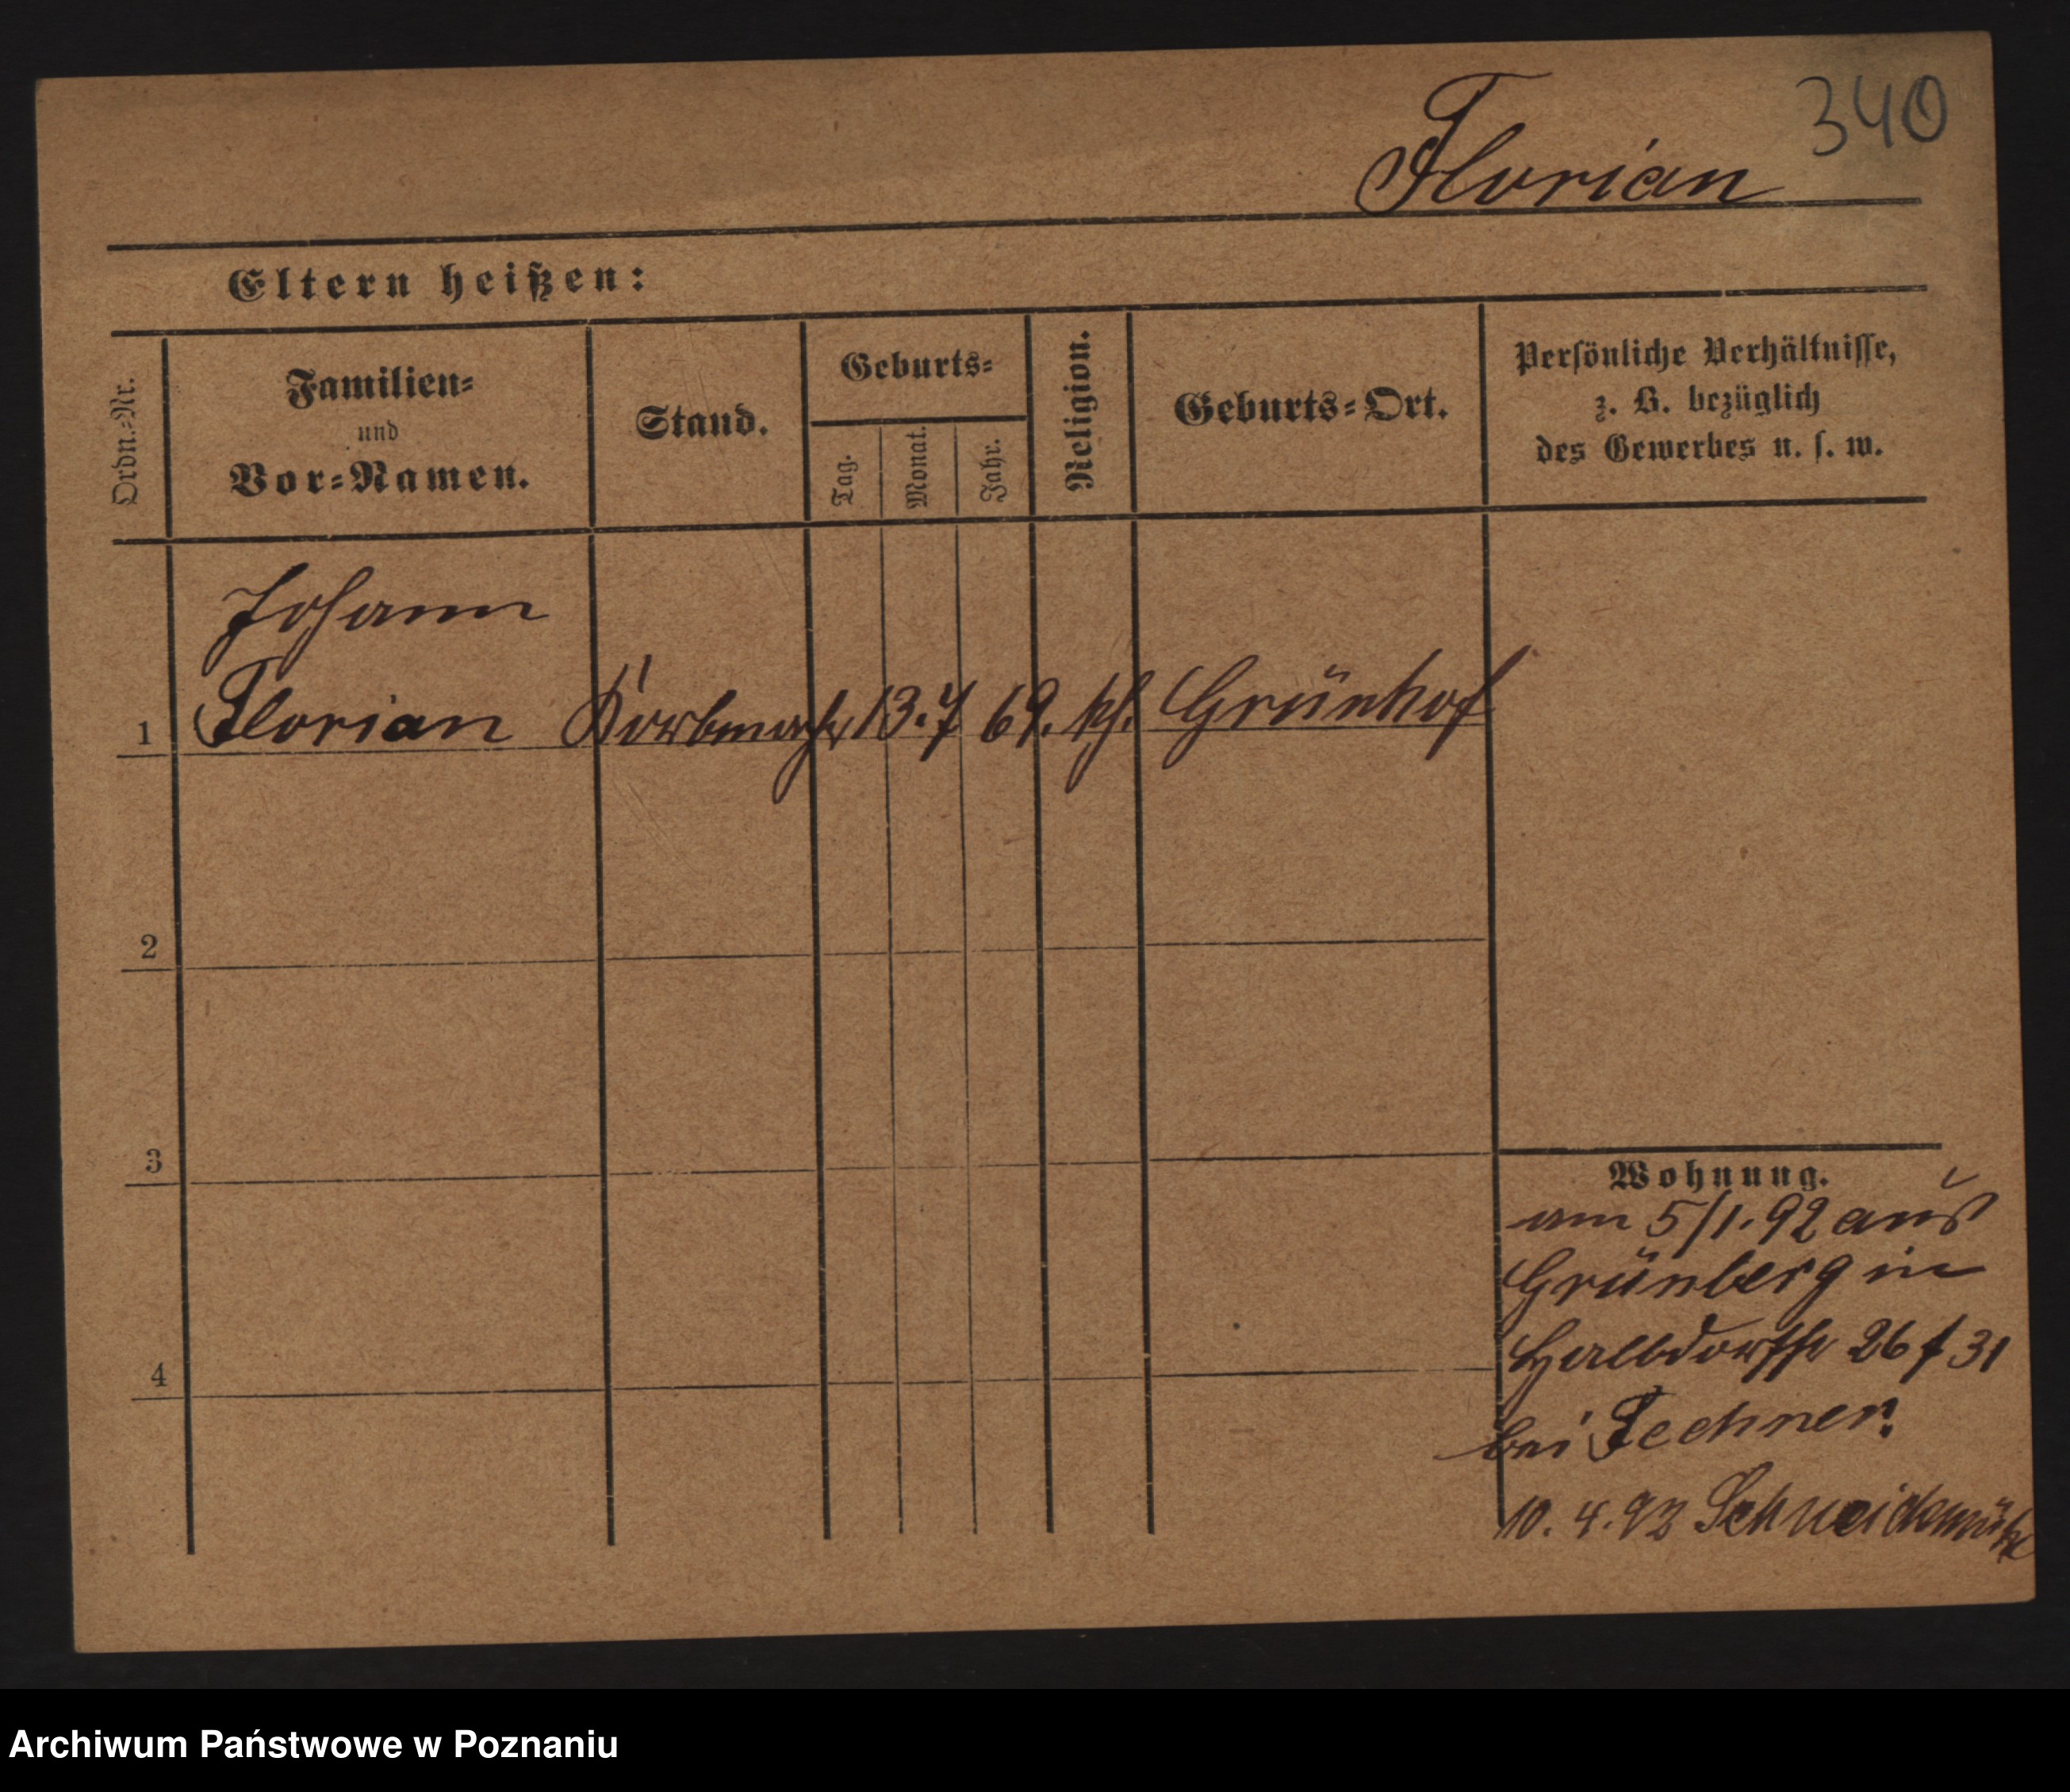 340
Florian
Eltern heißen:
Ordn.=Nr.
Familien=
und
Vor=Namen.
Stand.
Geburts=
Tag.
Monat.
Jahr.
Religion.
Geburts=Ort.
Persönliche Verhältnisse,
z. B. bezüglich
des Gewerbes u. s. w.
Johann
1 Florian Korbmacher 13. 7 69. kth. Grünhof
2
3
4
Wohnung.
am 5/1. 92 aus
Grünberg in
Halbdorfstr 26 / 31
bei Fechner.
10. 4. 92 Schneidemühl
Archiwum Państwowe w Poznaniu